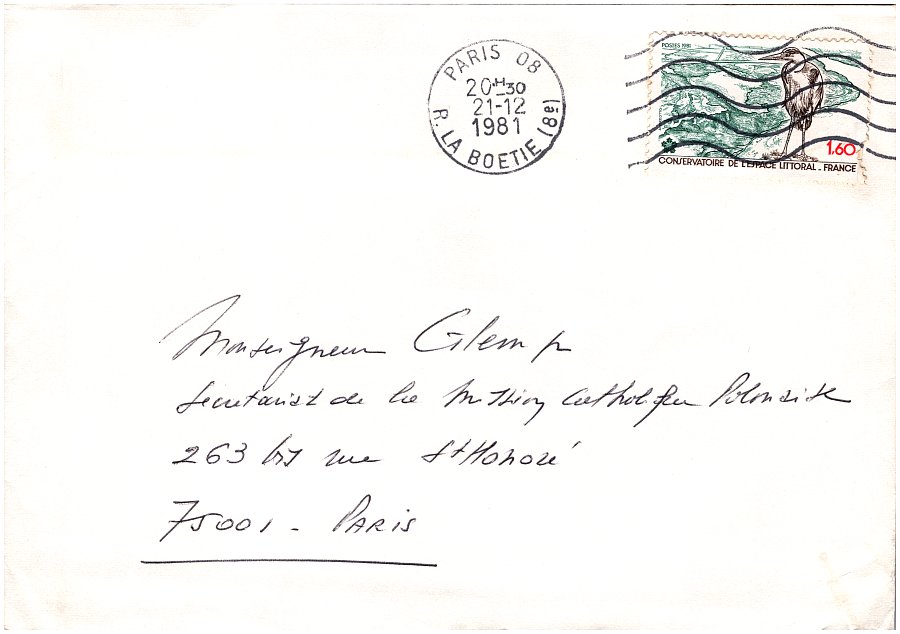 PARIS 08
20H30
21-12
1981
R. LA BOETIE (8e)
POSTES 1981
1.60
CONSERVATOIRE DE L'ESPACE LITTORAL - FRANCE
Monseigneur Glemp
Secretariat de la Mission Catholique Polonaise
263 bis rue St Honoré
75001 - PARIS